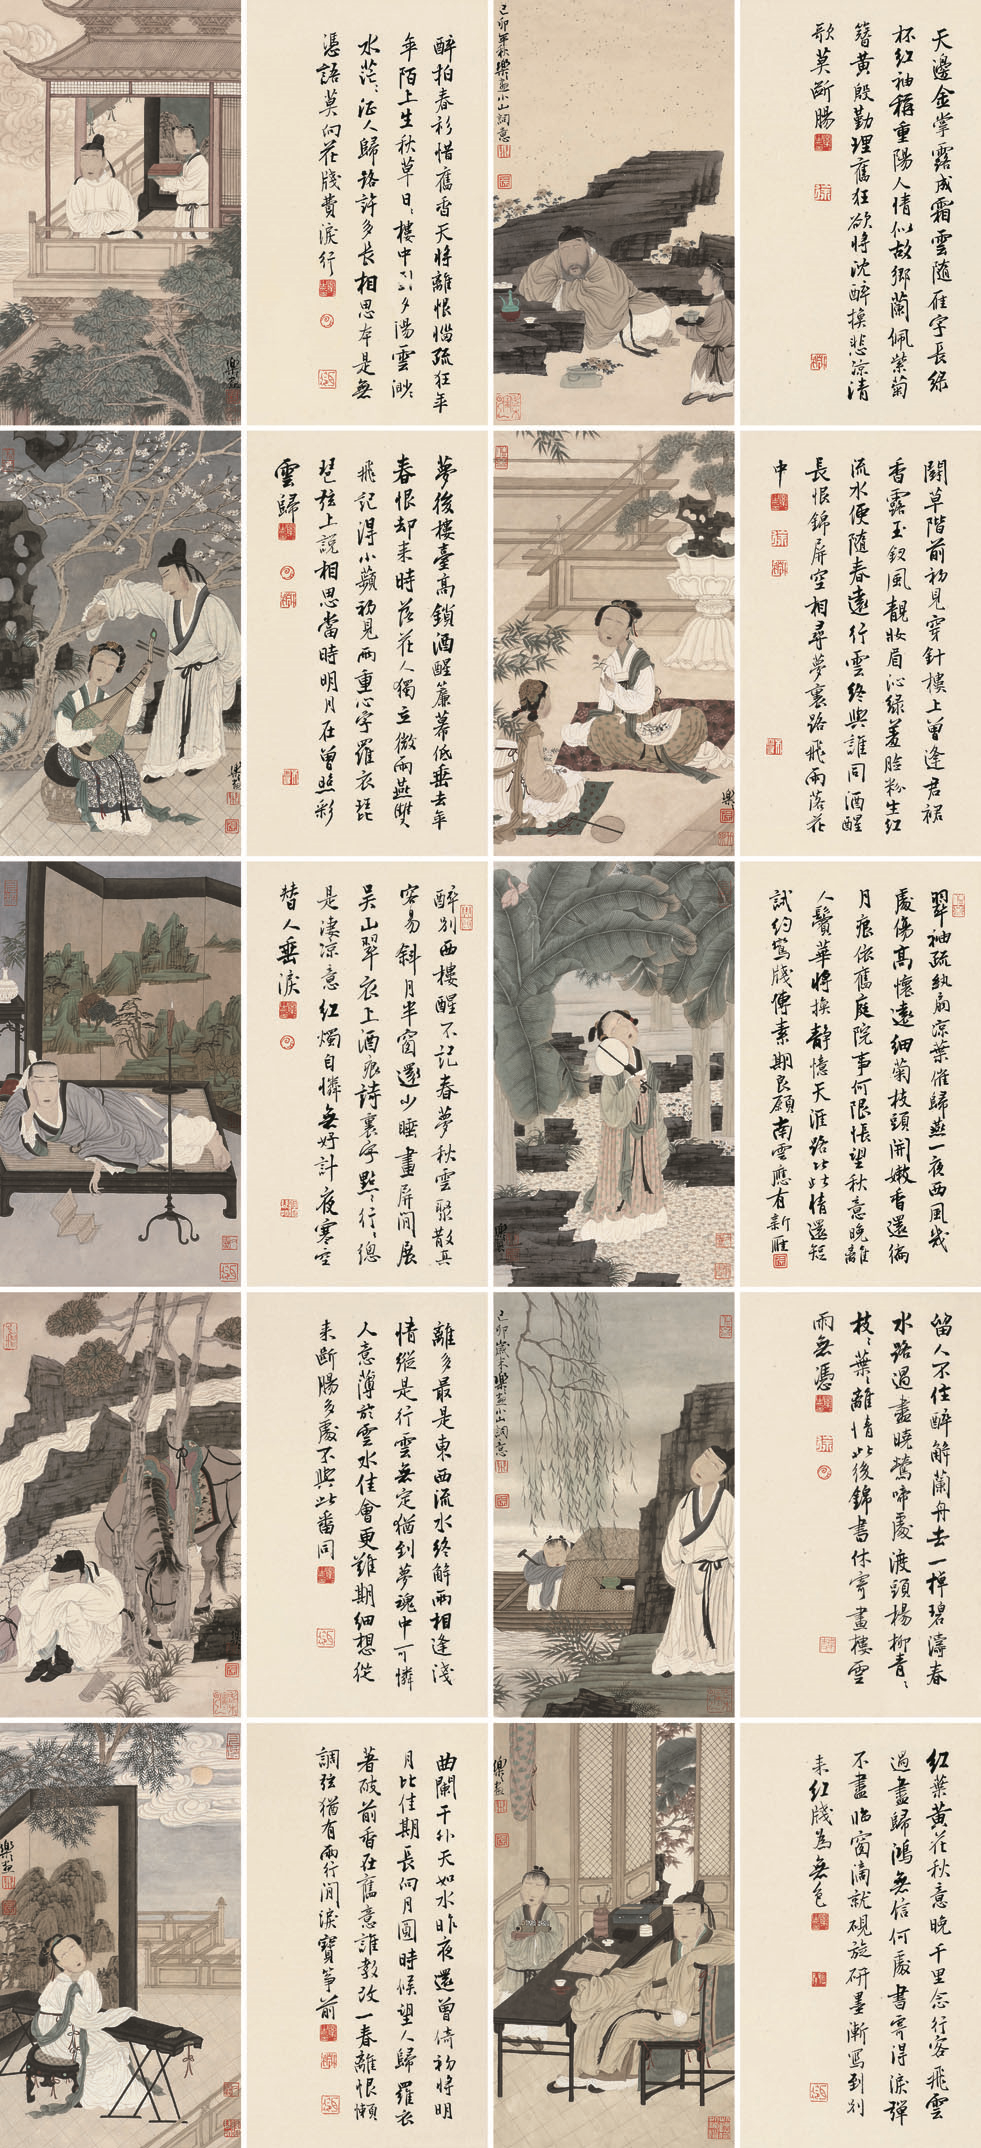 天邊金掌露成霜雲隨雁字長綠
杯紅袖稱重陽人情似故鄉蘭佩紫菊
簪黃殷勤理舊狂欲將沈醉換悲涼清
歌莫斷腸
己卯年秋樂小山詞意
醉拍春衫惜舊香天將離恨惱疏狂年
年陌上生秋草日〻樓中到夕陽雲渺〻
水茫〻征人歸路許多長相思本是無
憑語莫向花牋費淚行
樂
鬬草階前初見穿針樓上曾逢君裙
香露玉釵風靚妝眉沁綠羞臉粉生紅
流水便隨春遠行雲終與誰同酒醒
長恨錦屏空相尋夢裏路飛雨落花
中
樂
夢後樓臺高鎖酒醒簾幕低垂去年
春恨却來時落花人獨立微雨燕雙
飛記得小蘋初見兩重心字羅衣琵
琶弦上說相思當時明月在曾照彩
雲歸
樂
翠袖疏紈扇涼葉催歸燕一夜西風幾
處傷高懷遠細菊枝頭開嫩香還徧
月痕依舊庭院事何限悵望秋意晚離
人鬢華將換靜憶天涯路比此情還短
試約鸞牋傳素期良願南雲應有新雁
樂
醉別西樓醒不記春夢秋雲聚散真
容易斜月半窗還少睡畫屏閒展
吳山翠衣上酒痕詩裏字點〻行〻總
是淒涼意紅燭自憐無好計夜寒空
替人垂淚
留人不住醉解蘭舟去一棹碧濤春
水路過盡曉鶯啼處渡頭楊柳青〻
枝〻葉〻離情此後錦書休寄畫樓雲
雨無憑
己卯歲末樂小山詞意
離多最是東西流水終解兩相逢淺
情縱是行雲無定猶到夢魂中可憐
人意薄於雲水佳會更難期細想從
來斷腸多處不與此番同
紅葉黃花秋意晚千里念行客飛雲
過盡歸鴻無信何處書寄得淚彈
不盡臨窗滴就硯旋研墨漸寫到別
來紅牋為無色
樂
曲闌干外天如水昨夜還曾倚初將明
月比佳期長向月圓時候望人歸羅衣
著破前香在舊意誰教改一春離恨懶
調弦猶有兩行閒淚寶箏前
樂